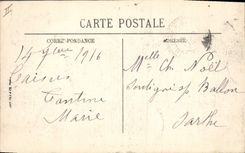 CARTE POSTALE
CORRESPONDANCE
ADRESSE
14 1916
Baisers
Fantine
Marie
Melle Ch. Noël
Souligné sp Ballon
Sarthe